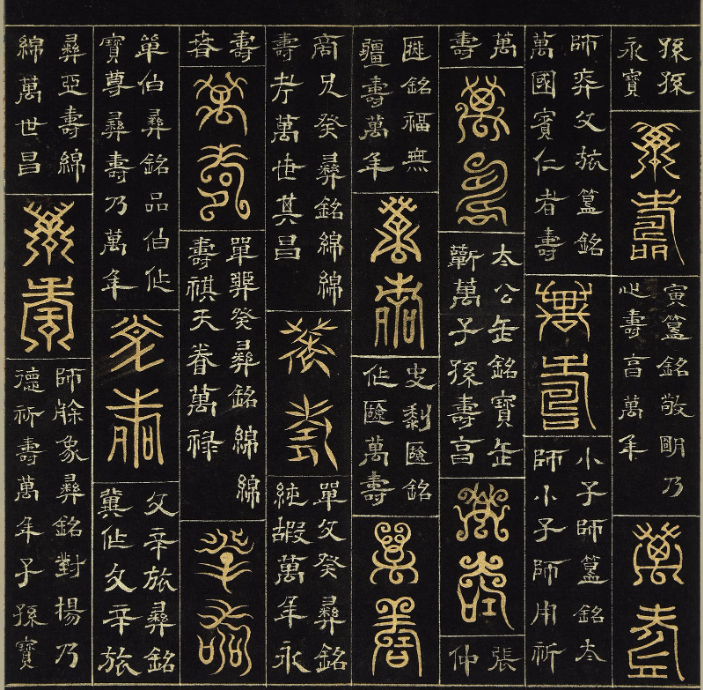 孫孫
永寶
萬壽
寅簋銘敬明乃
心壽亯萬年
萬壽
師奔父旅簋銘
萬國賓仁者壽
萬壽
小子師簋銘太
師小子師用祈
萬
壽
萬壽
太公缶銘寶缶
蘄萬子孫壽亯
萬壽
張
仲
匜銘福無
疆壽萬年
萬壽
史匜銘
作匜萬壽
萬壽
商兄癸彝銘綿綿
壽考萬世其昌
萬壽
單父癸彝銘
純嘏萬年永
壽
眷
萬壽
單癸彝銘綿綿
壽祺天眷萬祿
萬壽
單伯彝銘品伯作
寶尊彝壽乃萬年
萬壽
父辛旅彝銘
冀作父辛旅
彝亞壽綿
綿萬世昌
萬壽
師艅象彝銘對揚乃
德祈壽萬年子孫寶